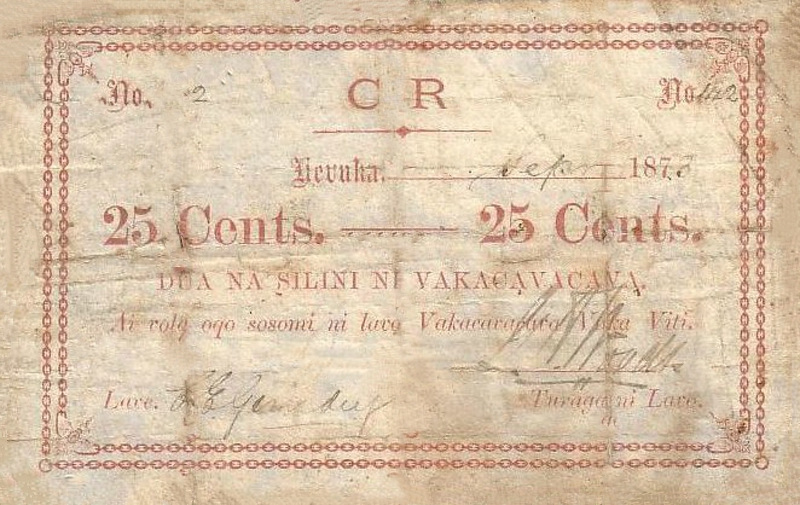 No. 2 C R No 142
Levuka. Sep 1873
25 Cents. 25 Cents.
DUA NA SILINI NI VAKACAVACAVA.
Ai vola oqo sosomi ni lavo Vakacavacava Vaka Viti.
Lave.
Turaga ni Lave.